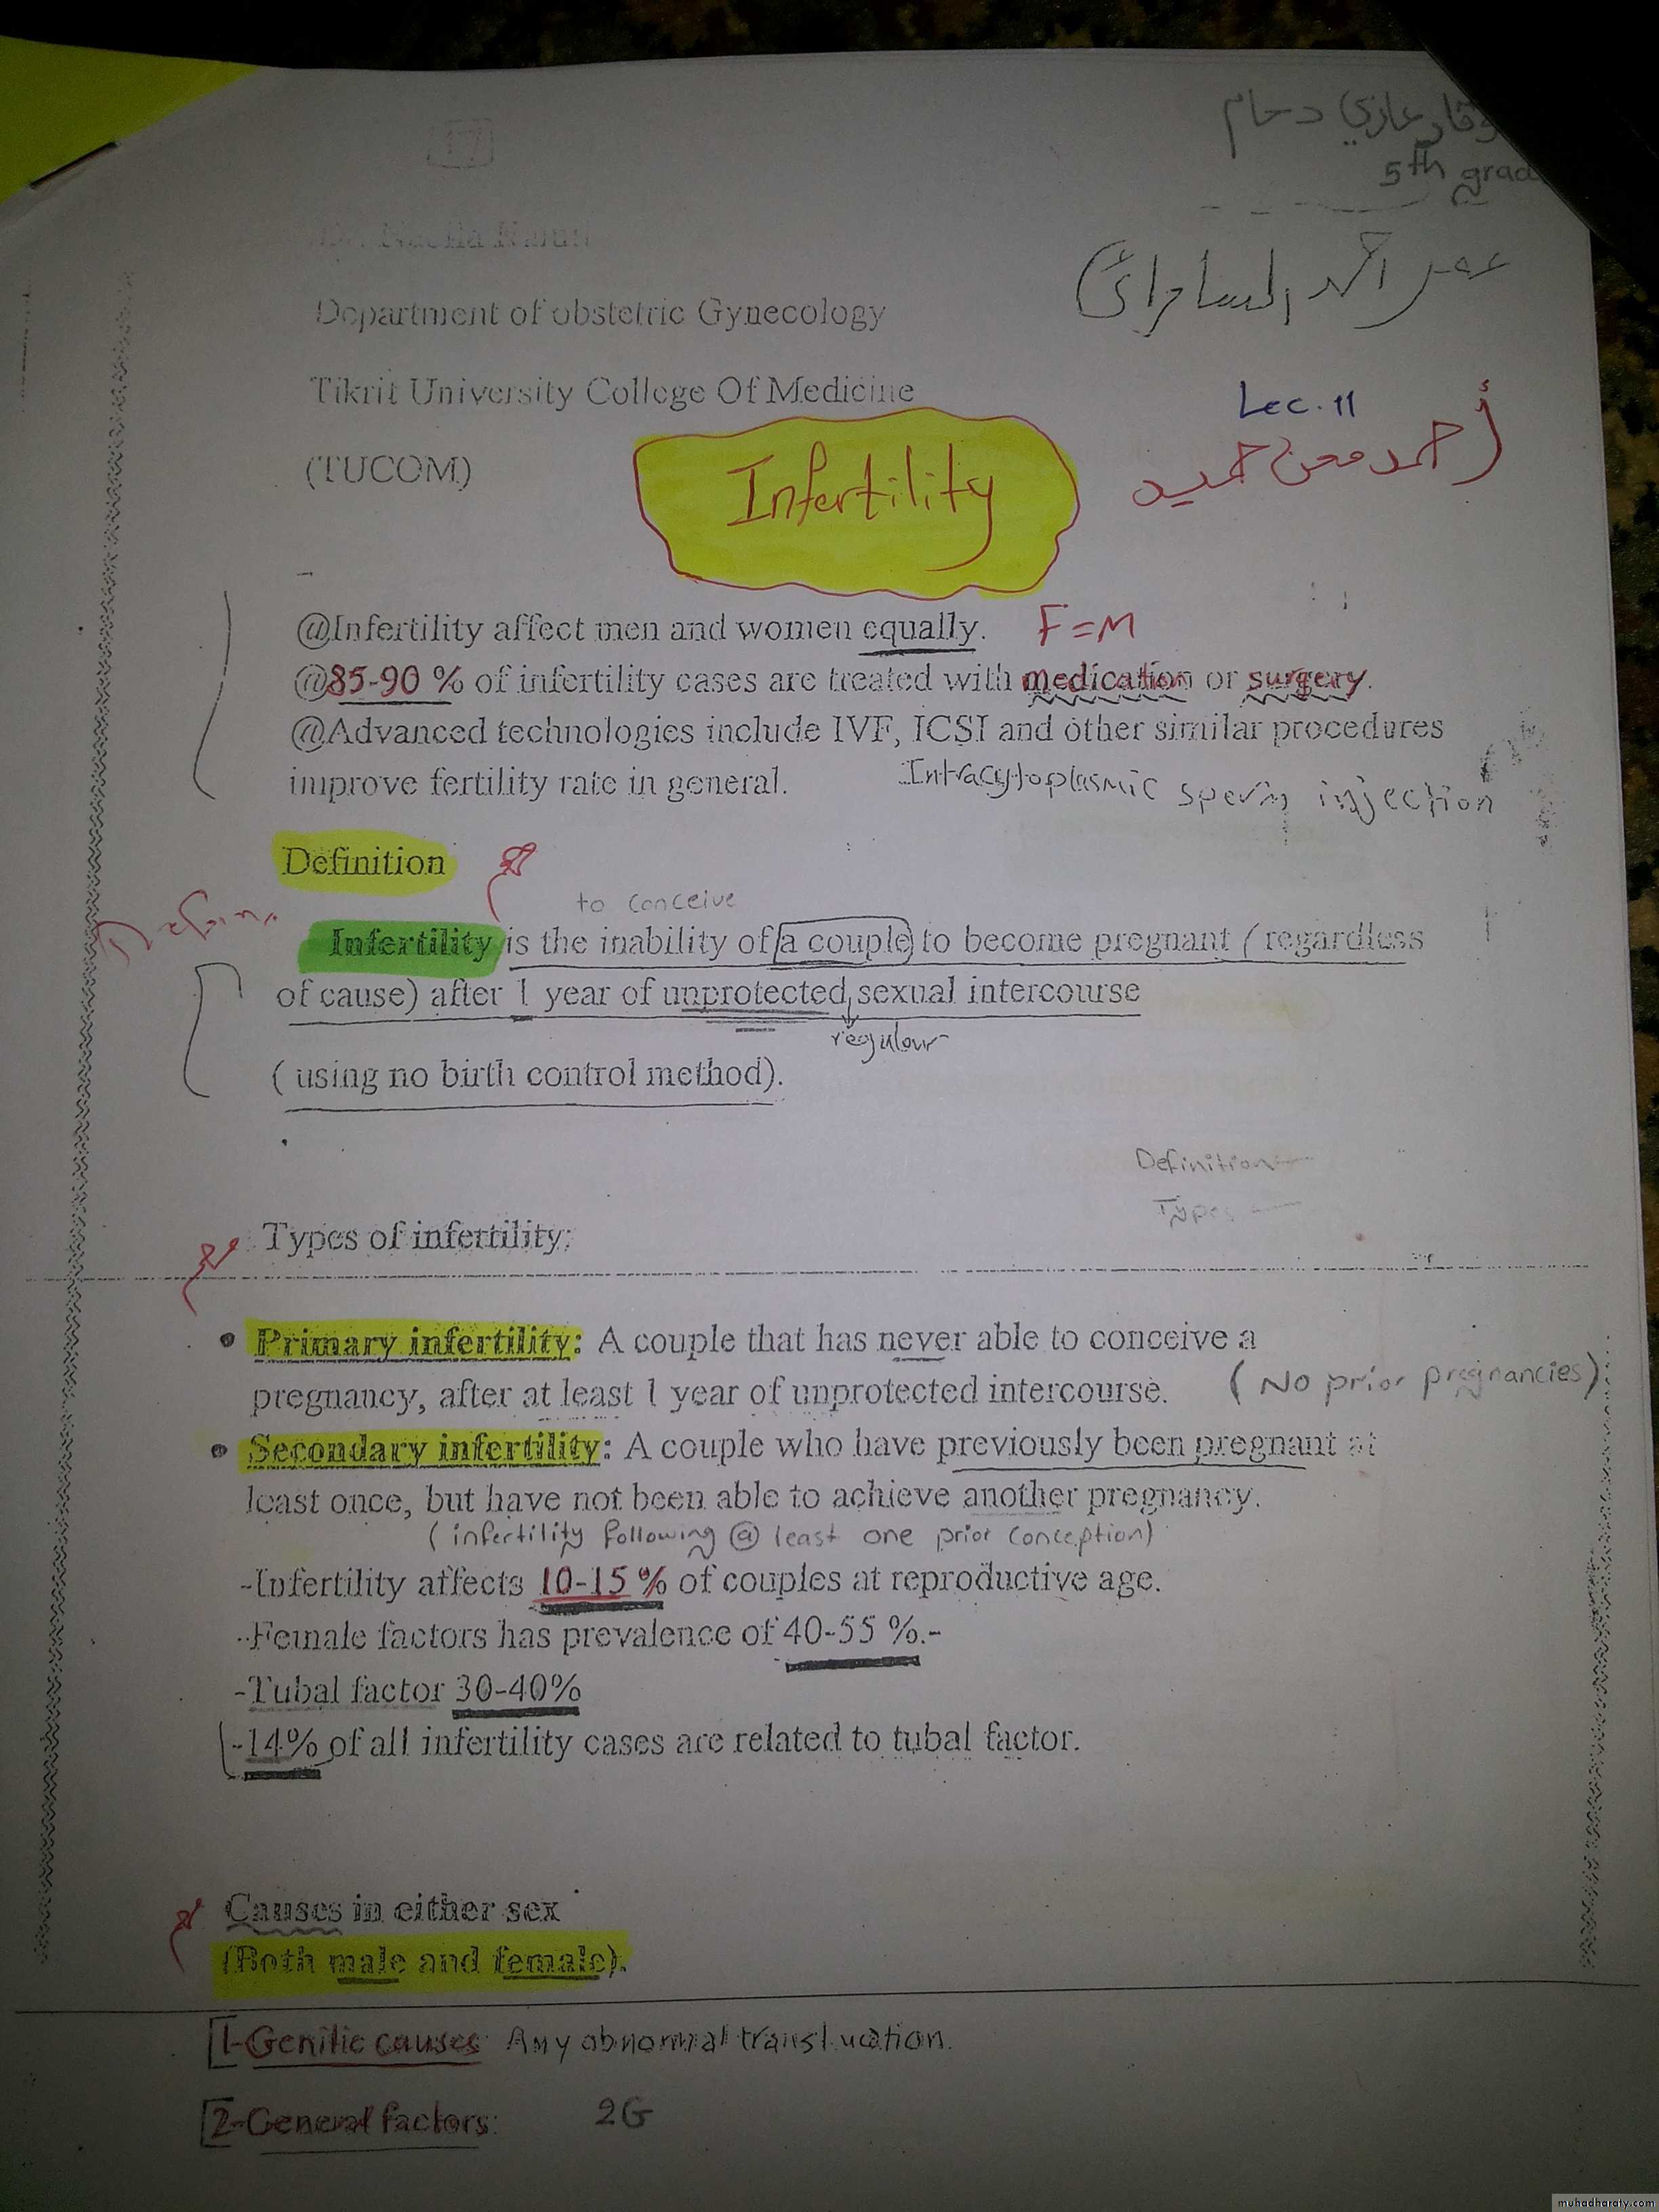 17
وقار غازي دحام
5th grad
Department of obstetric Gynecology
عمر احمد السامرائي
Tikrit University College Of Medicine
Lec. 11
(TUCOM)
Infertility
@Infertility affect men and women equally. F=M
@85-90 % of infertility cases are treated with medication or surgery.
@Advanced technologies include IVF, ICSI and other similar procedures
improve fertility rate in general.
Intracytoplasmic sperm injection
Definition
to conceive
Infertility is the inability of a couple to become pregnant ( regardless
of cause) after 1 year of unprotected sexual intercourse
regular
( using no birth control method).
Definition
Types
Types of infertility:
• Primary infertility: A couple that has never able to conceive a
pregnancy, after at least 1 year of unprotected intercourse. ( No prior pregnancies)
• Secondary infertility: A couple who have previously been pregnant at
least once, but have not been able to achieve another pregnancy.
( infertility following @ least one prior conception)
-Infertility affects 10-15 % of couples at reproductive age.
-Female factors has prevalence of 40-55 %.-
-Tubal factor 30-40%
-14% of all infertility cases are related to tubal factor.
Causes in either sex
(Both male and female).
1-Genitic causes: Any abnormal translucation.
2-General factors: 2G
muhadharaty.com